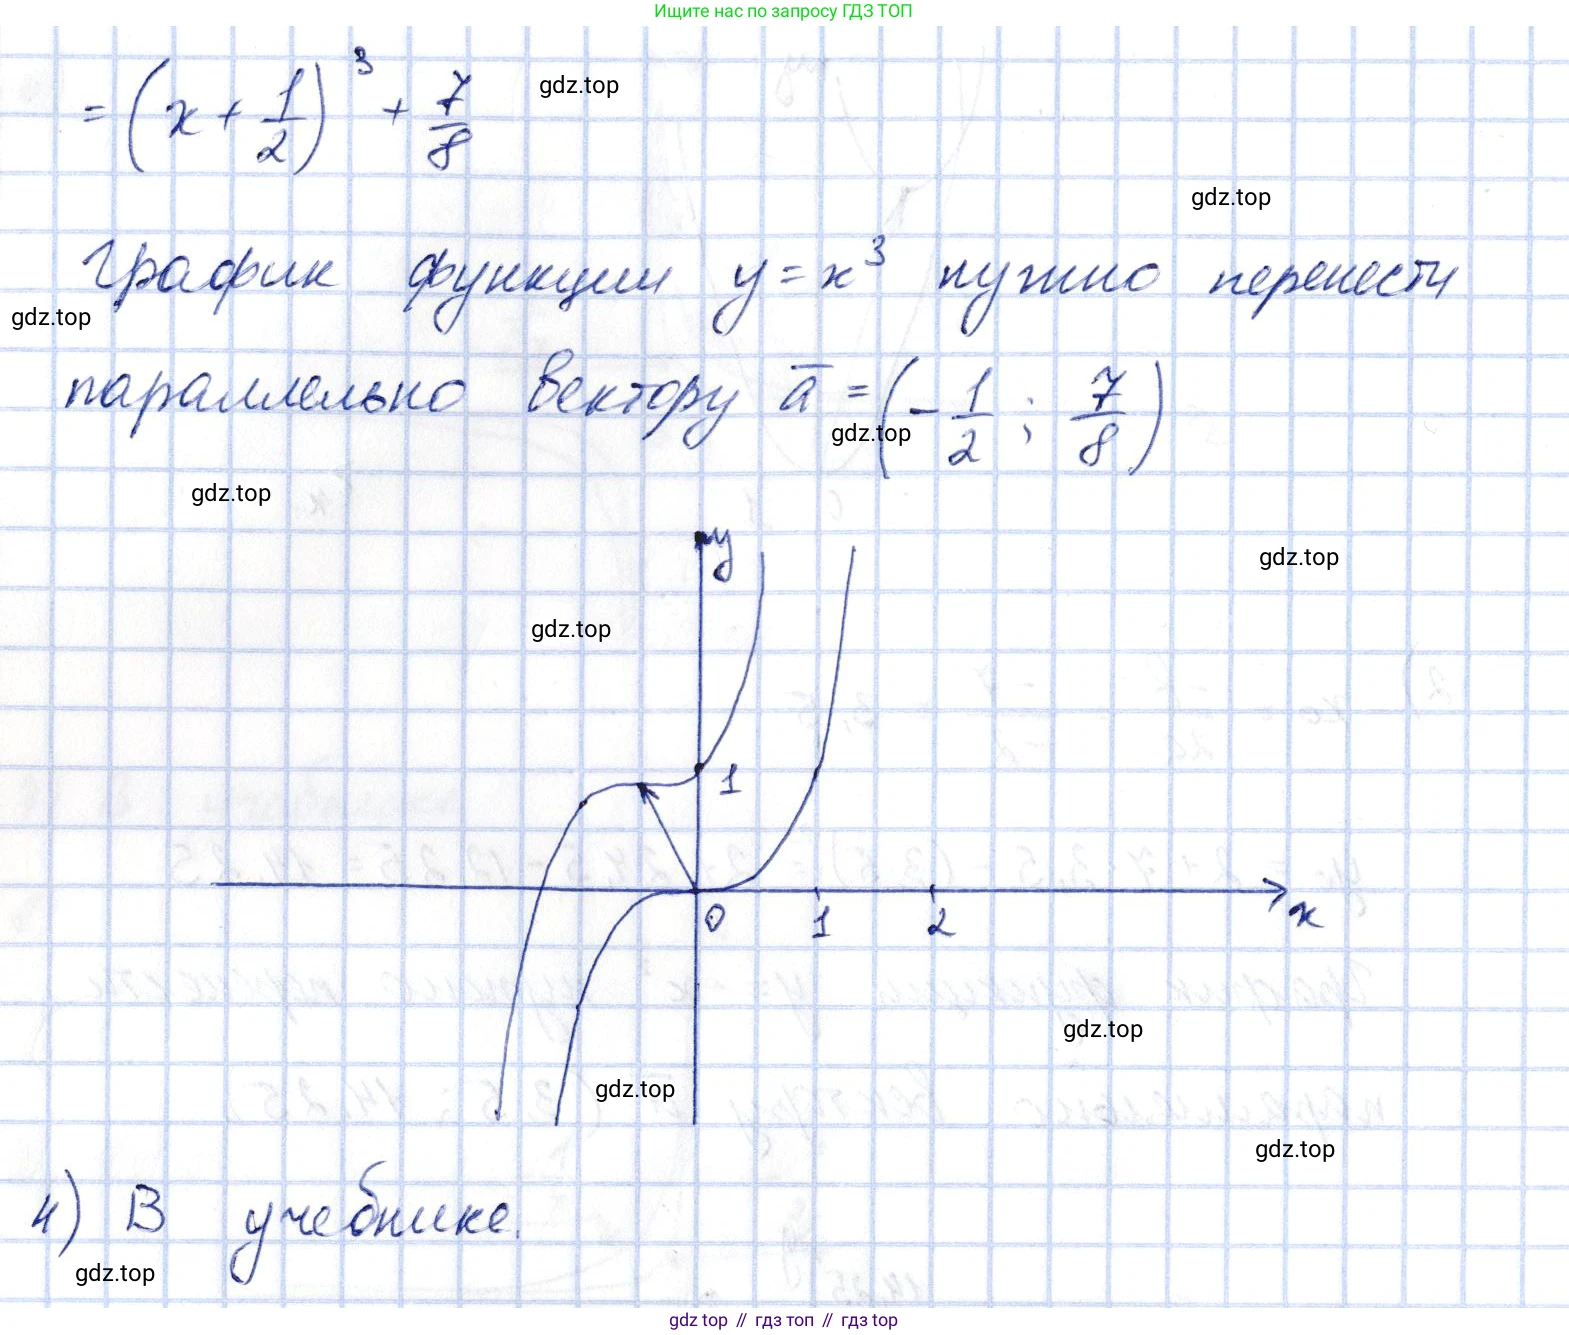 Ищите нас по запросу ГДЗ ТОП
= (x + 1/2)³ + 7/8
gdz.top
gdz.top
График функции y = x³ нужно перенести
gdz.top
параллельно вектору a̅ = (-1/2 ; 7/8)
gdz.top
gdz.top
y
gdz.top
gdz.top
1
0 1 2 x
gdz.top
gdz.top
gdz.top
4) В учебнике.
gdz.top
gdz top // гдз топ // гдз top